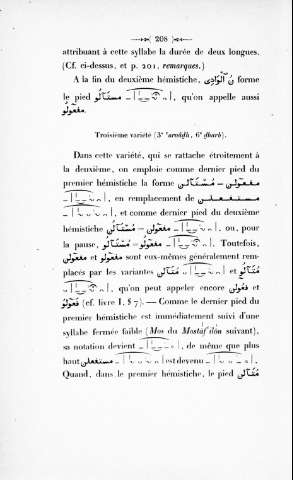 208
attribuant à cette syllabe la durée de deux longues.
(Cf. ci-dessus, et p. 201, remarques.)
A la fin du deuxième hémistiche, نِ ٱلْوَادِى forme
le pied مستآلو, qu'on appelle aussi
مفعولو.
Troisième variété (3ᵉ ʿarouḍh, 6ᵉ dharb).
Dans cette variété, qui se rattache étroitement à
la deuxième, on emploie comme dernier pied du
premier hémistiche la forme مفعولى — مُسْتَآلى
en remplacement de مستفعلى
, et comme dernier pied du deuxième
hémistiche مفعولى — مُسْتَآلى, ou, pour
la pause, مفعولو — مُسْتَآلو. Toutefois,
مفعولى et مفعولو sont eux-mêmes généralement rem-
placés par les variantes مُتَآلى et مُتَآلو
, qu'on peut appeler encore فعولى et
فعولو (cf. livre I, § 7). — Comme le dernier pied du
premier hémistiche est immédiatement suivi d'une
syllabe fermée faible (Mos du Mostafʿilon suivant),
sa notation devient, de même que plus
haut مستفعلى est devenu.
Quand, dans le premier hémistiche, le pied مُتَآلى